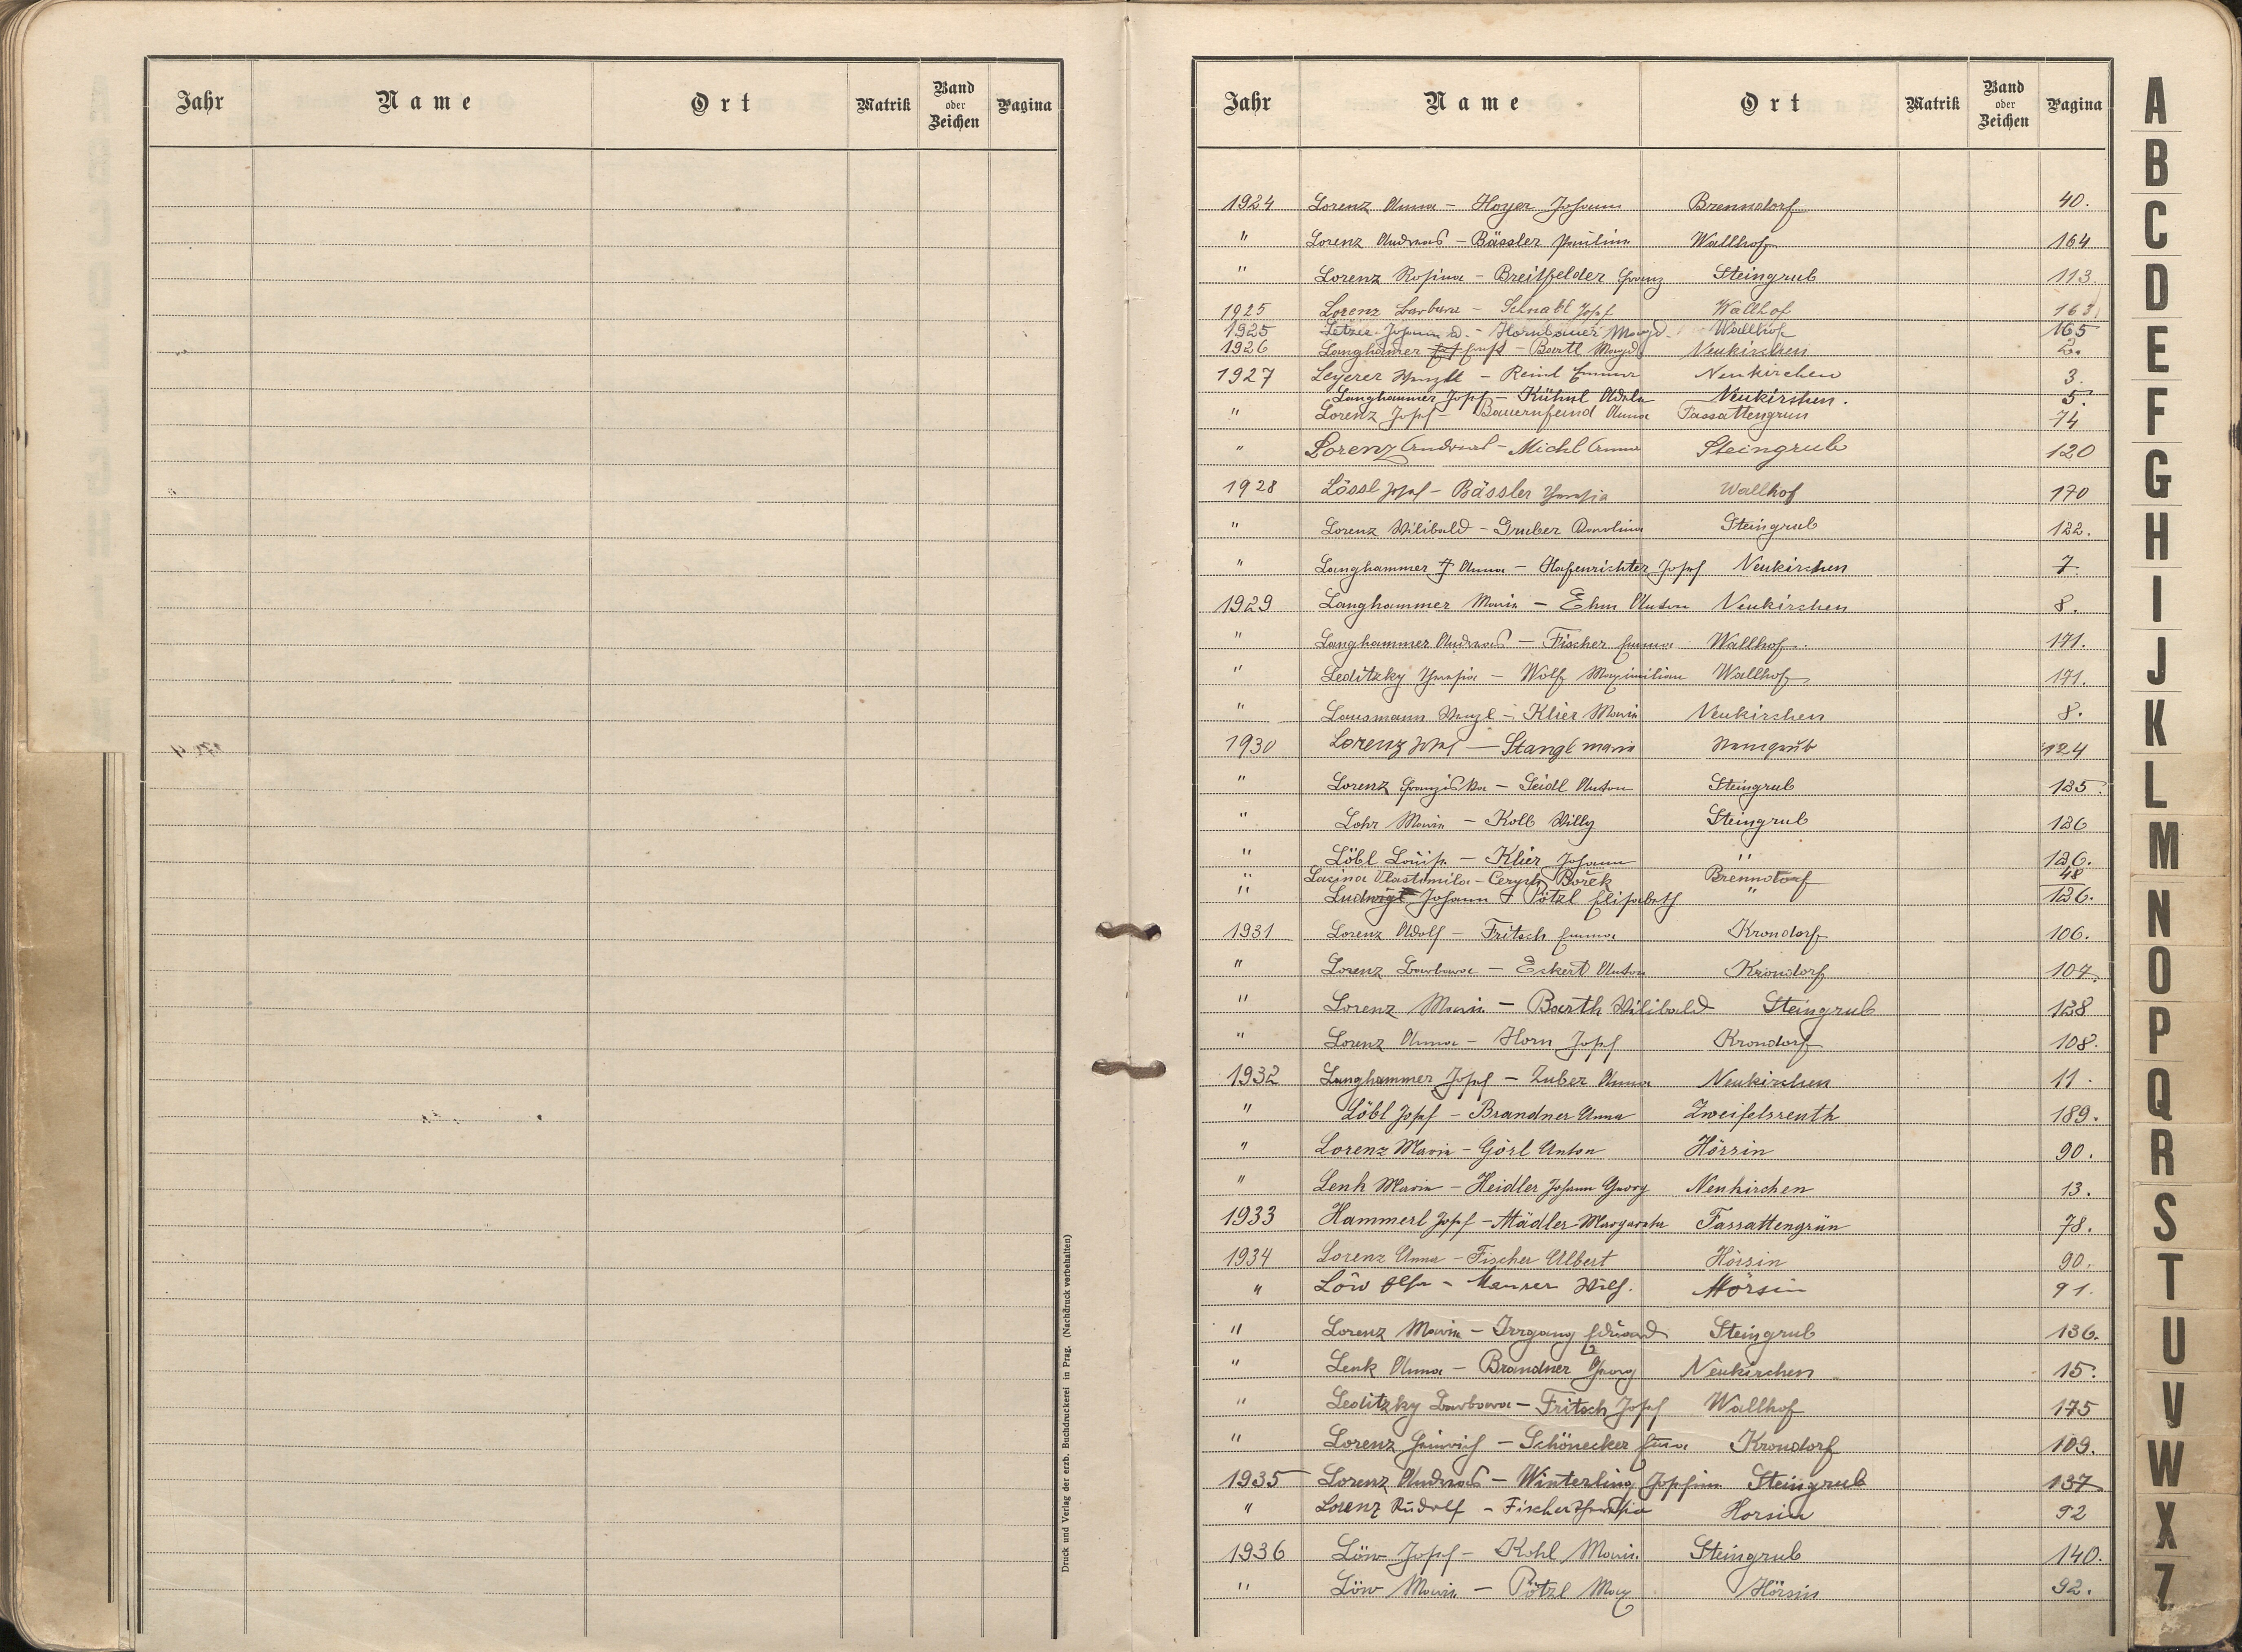 Jahr Name Ort Matrik Band oder Zeichen Pagina
Druck und Verlag der erzb. Buchdruckerei in Prag. (Nachdruck vorbehalten)
Jahr Name Ort Matrik Band oder Zeichen Pagina
1924 Lorenz Anna - Hoyer Johann Brenndorf 40.
" Lorenz Andreas - Bässler Paulina Wallhof 164
" Lorenz Rosina - Breitfelder Franz Steingrub 113.
1925 Lorenz Barbara - Schnabl Josef Wallhof 163
1925 Johann - Hornbauer Wallhof 165
1926 Langhamer Ernst - Bartl Neukirchen 2.
1927 Leyerer Wenzl - Reinl Emma Neukirchen 3.
Langhammer Josef - Kühnl Adele Neukirchen. 5.
" Lorenz Josef - Bauernfeind Anna Fassattengrün 74
" Lorenz Andreas - Michl Anna Steingrub 120
1928 Lössl Josef - Bässler Theresia Wallhof 170
" Lorenz Wilibald - Gruber Karolina Steingrub 122.
" Langhammer Anna - Hafenrichter Josef Neukirchen 7.
1929 Langhammer Maria - Ehm Anton Neukirchen 8.
" Langhammer Andreas - Fischer Emma Wallhof. 171.
" Leditzky Theresia - Wolf Maximilian Wallhof 171.
" Lausmann Wenzl - Klier Maria Neukirchen 8.
1930 Lorenz Josef - Stangl Maria Steingrub 124
" Lorenz Franziska - Seidl Anton Steingrub 125
" Lohr Maria - Kolb Willy Steingrub 126
" Löbl Louise - Klier Johann " 126.
" Lacina Vlastimila - Cerych Bořek Brenndorf 48
" Ludwig Johann - Pötzl Elisabeth " 126.
1931 Lorenz Adolf - Fritsch Emma Krondorf 106.
" Lorenz Barbara - Eckert Anton Krondorf 107.
" Lorenz Maria - Barth Wilibald Steingrub 128
" Lorenz Anna - Horn Josef Krondorf 108.
1932 Langhammer Josef - Zuber Anna Neukirchen 11.
" Löbl Josef - Brandner Anna Zweifelsreuth 189.
" Lorenz Maria - Görl Anton Hörsin 90.
" Lenk Maria - Heidler Johann Georg Neukirchen 13.
1933 Hammerl Josef - Mädler Margareta Fassattengrün 78.
1934 Lorenz Anna - Fischer Albert Hörsin 90.
" Löw Elsa - Maurer Wilh. Hörsin 91.
" Lorenz Maria - Irrgang Eduard Steingrub 136.
" Lenk Anna - Brandner Georg Neukirchen 15.
" Leditzky Barbara - Fritsch Josef Wallhof 175
" Lorenz Heinrich - Schönecker Erna Krondorf 109.
1935 Lorenz Andreas - Winterling Josefine Steingrub 137
" Lorenz Rudolf - Fischer Theresia Horsin 92
1936 Löw Josef - Kohl Maria Steingrub 140.
" Löw Maria - Pötzl Max Hörsin 92.
A
B
C
D
E
F
G
H
I
J
K
L
M
N
O
P
Q
R
S
T
U
V
W
X
Z